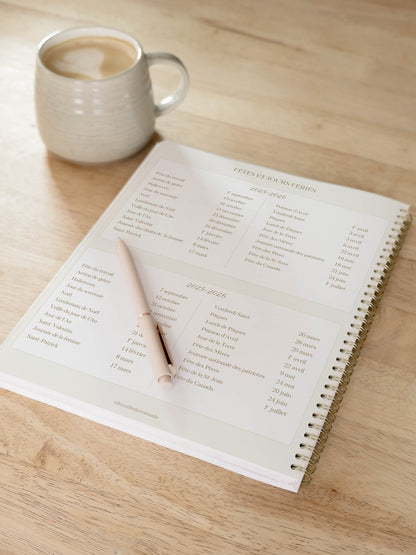 FÊTES ET JOURS FÉRIÉS
2025-2026
Fête du travail
Action de grâce
Halloween
Jour du souvenir
Noël
Lendemain de Noël
Veille du jour de l'An
Jour de l'An
Saint-Valentin
Journée des droits de la femme
Saint-Patrick
septembre
octobre
octobre
novembre
décembre
décembre
décembre
janvier
14 février
8 mars
17 mars
Poisson d'Avril
Vendredi Saint
Pâques
Lundi de Pâques
Jour de la Terre
Fête des Mères
Journée nationale des patriotes
Fête des Pères
Fête de la St-Jean
Fête du Canada
avril
avril
avril
avril
avril
mai
mai
juin
juin
juillet
2025-2026
Fête du travail
Action de grâce
Halloween
Jour du souvenir
Noël
Lendemain de Noël
Veille du jour de l'An
Jour de l'An
Saint-Valentin
Journée de la femme
Saint-Patrick
7 septembre
12 octobre
14 février
8 mars
17 mars
Vendredi Saint
Pâques
Lundi de Pâques
Poisson d'Avril
Jour de la Terre
Fête des Mères
Journée nationale des patriotes
Fête des Pères
Fête de la St-Jean
Fête du Canada
26 mars
28 mars
29 mars
1er avril
22 avril
9 mai
24 mai
20 juin
24 juin
1er juillet